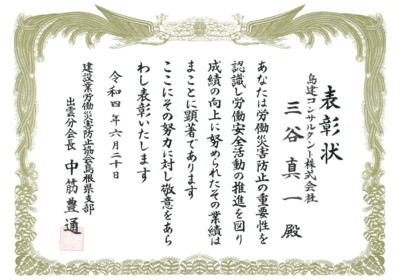 表彰状
島建コンサルタント株式会社
三谷真一殿
あなたは労働災害防止の重要性を
認識し労働安全活動の推進を図り
成績の向上に努められたその業績は
まことに顕著であります
ここにその努力に対し敬意をあら
わし表彰いたします
令和四年六月二十日
建設業労働災害防止協会島根県支部
出雲分会長 中筋豊通